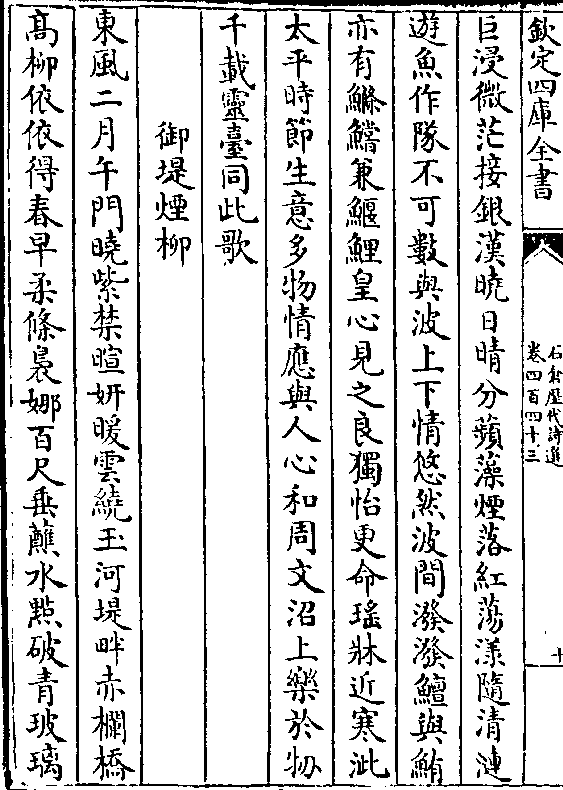 欽定四庫全書
石倉歷代詩選
卷四百四十三
十
巨浸微茫接銀漢曉日晴分蘋藻煙落紅蕩漾隨清漣
遊魚作隊不可數與波上下情悠然波間潑潑鱣與鮪
亦有鰷鱨兼鰋鯉皇心見之良獨怡更命瑤牀近寒泚
太平時節生意多物情應與人心和周文沼上樂於牣
千載靈臺同此歌
御堤煙柳
東風二月午門曉紫禁暄妍暖雲繞玉河堤畔赤欄橋
高柳依依得春早柔條裊娜百尺垂蘸水㸃破青玻璃